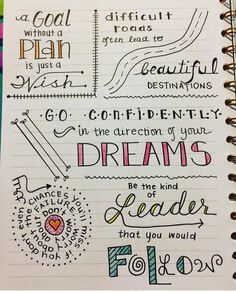 a GOAL
without a
PLAN
is just a
Wish
difficult
roads
often lead to
beautiful
DESTINATIONS
GO CONFIDENTLY
in the direction of your
DREAMS
Don't worry about the FAILURES worry about the CHANCES you'll miss if you don't even try
Be the kind of
Leader
that you would
FOLLOW